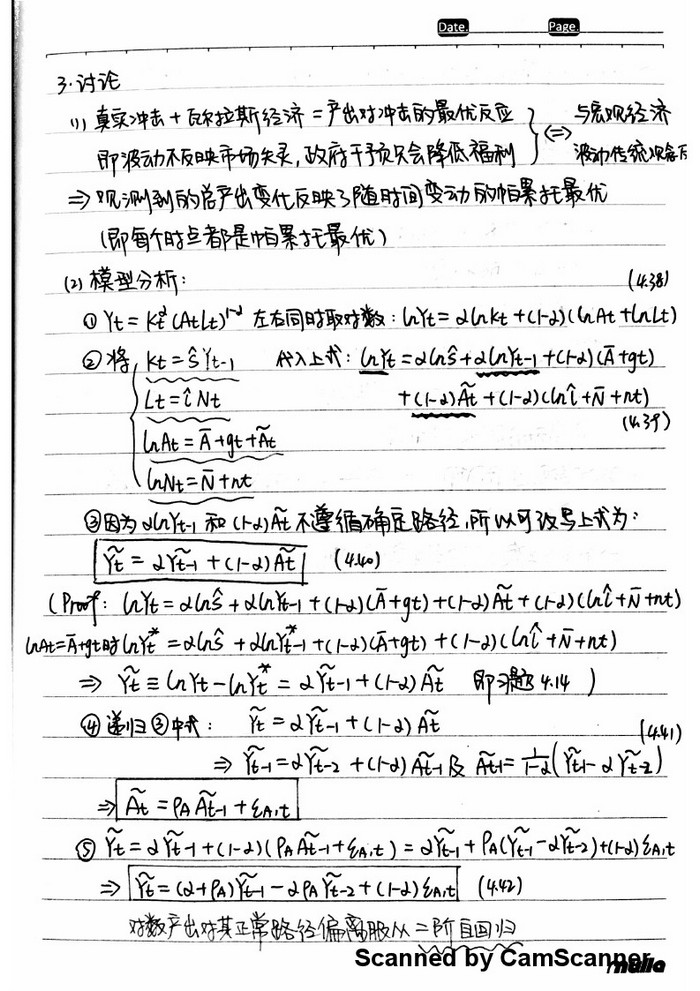 Date. Page.
3. 讨论
(1) 真实冲击 + 瓦尔拉斯经济 = 产出对冲击的最优反应 } ⇔ 与宏观经济
即波动不反映市场失灵,政府干预只会降低福利 波动传统观念
⇒ 观测到的总产出变化反映了随时间变动的帕累托最优
(即每个时点都是帕累托最优)
(2) 模型分析: (4.38)
① Yt = Kt^α (AtLt)^1-α 左右同时取对数: lnYt = αlnKt + (1-α)(lnAt + lnLt)
② 将 { Kt = ŝYt-1 代入上式: lnYt = αlnŝ + αlnYt-1 + (1-α)(Ā+gt)
Lt = l̂Nt + (1-α)Ãt + (1-α)(lnl̂ + N̄ + nt)
(4.39)
lnAt = Ā + gt + Ãt
lnNt = N̄ + nt
③ 因为 αlnYt-1 和 (1-α)Ãt 不遵循确定路径,所以可改写上式为:
Ỹt = αỸt-1 + (1-α)Ãt (4.40)
(Proof: lnYt = αlnŝ + αlnYt-1 + (1-α)(Ā+gt) + (1-α)Ãt + (1-α)(lnl̂+N̄+nt)
lnAt=Ā+gt时 lnYt* = αlnŝ + αlnYt-1* + (1-α)(Ā+gt) + (1-α)(lnl̂+N̄+nt)
⇒ Ỹt ≡ lnYt - lnYt* = αỸt-1 + (1-α)Ãt 即习题4.14 )
④ 递归③中式: Ỹt = αỸt-1 + (1-α)Ãt (4.41)
⇒ Ỹt-1 = αỸt-2 + (1-α)Ãt-1 及 Ãt-1 = 1/(1-α) (Ỹt-1 - αỸt-2)
⇒ Ãt = ρAÃt-1 + εA,t
⑤ Ỹt = αỸt-1 + (1-α)(ρAÃt-1 + εA,t) = αỸt-1 + ρA(Ỹt-1 - αỸt-2) + (1-α)εA,t
⇒ Ỹt = (α+ρA)Ỹt-1 - αρAỸt-2 + (1-α)εA,t (4.42)
对数产出对其正常路径偏离服从二阶自回归
Scanned by CamScanner